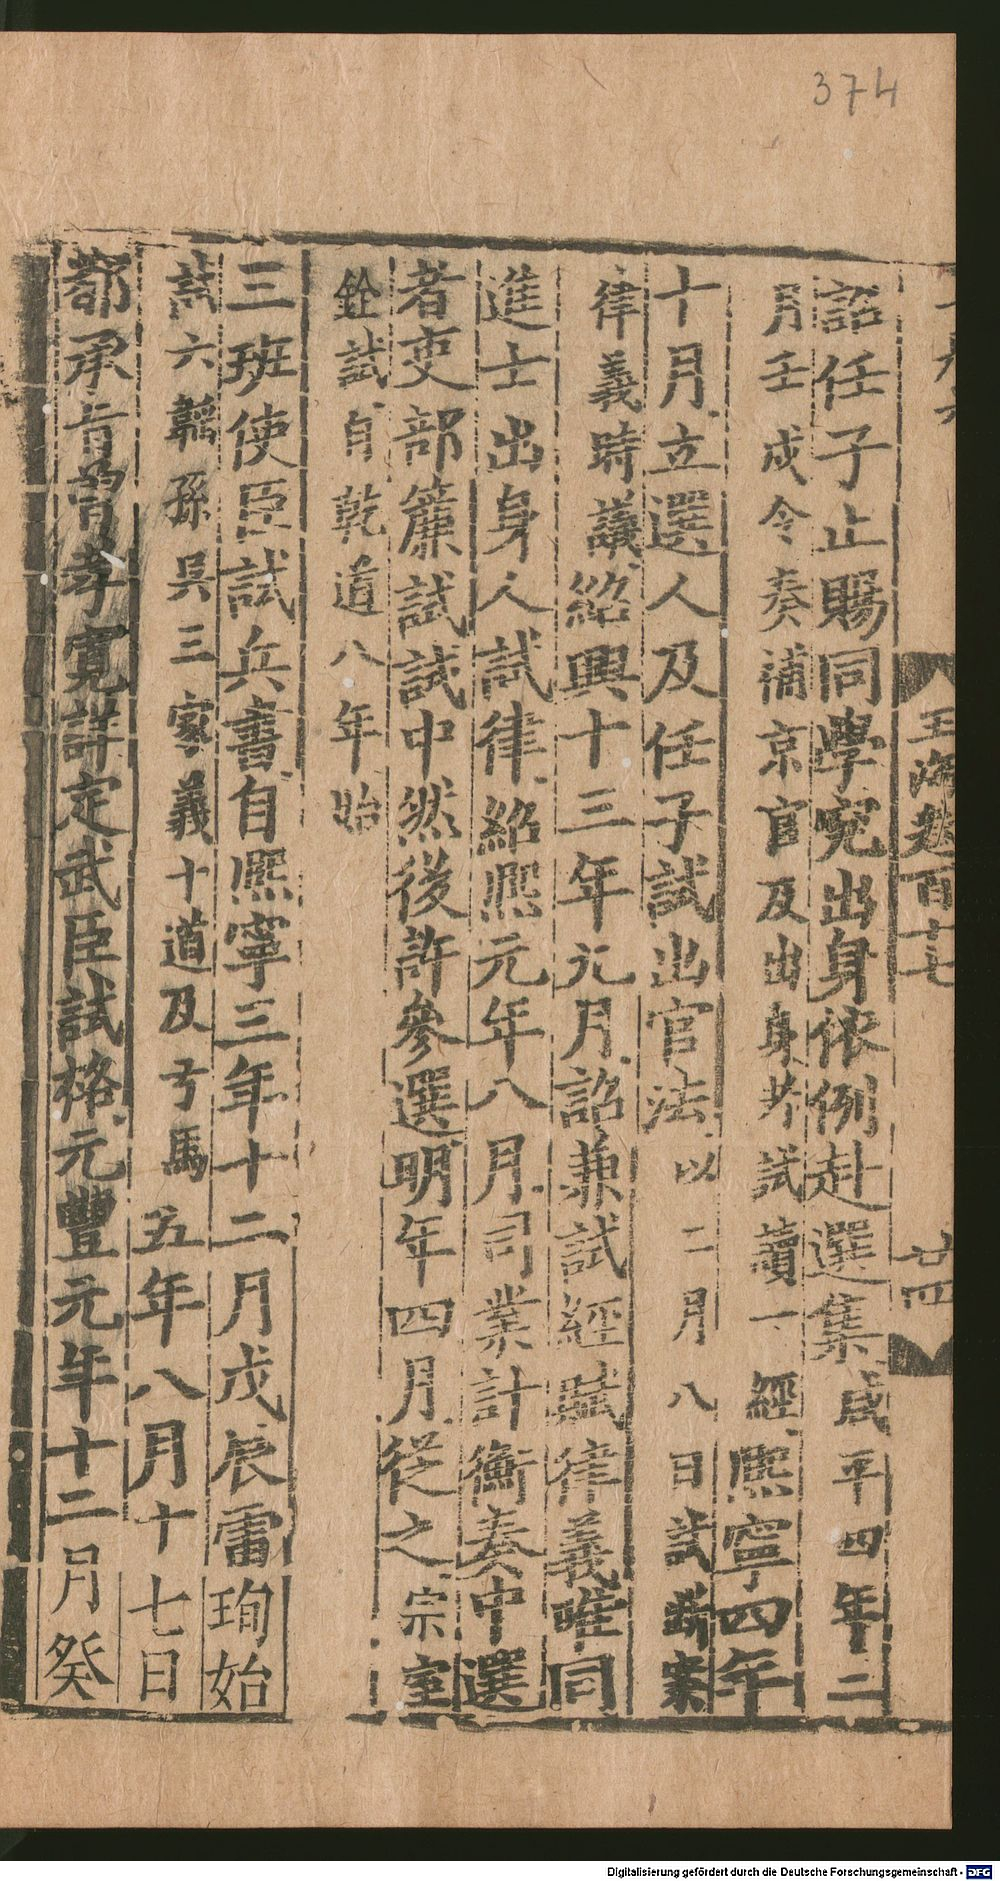 374
玉海卷百十七
廿四
詔任子止賜同學究出身依例赴選集咸平四年二
月壬戌令奏補京官及出身者試讀一經熙寧四年
十月立選人及任子試出官法以二月八日試斷案
律義時議紹興十三年元月詔兼試經賦律義唯同
進士出身人試律紹熙元年八月司業計衡奏中選
者吏部簾試試中然後許參選明年四月從之宗室
銓試自乾道八年始
三班使臣試兵書自熙寧三年十二月戊辰雷珣始
試六韜孫吳三家義十道及弓馬五年八月十七日
都承旨曾孝寬詳定武臣試格元豐元年十二月癸
Digitalisierung gefördert durch die Deutsche Forschungsgemeinschaft - DFG